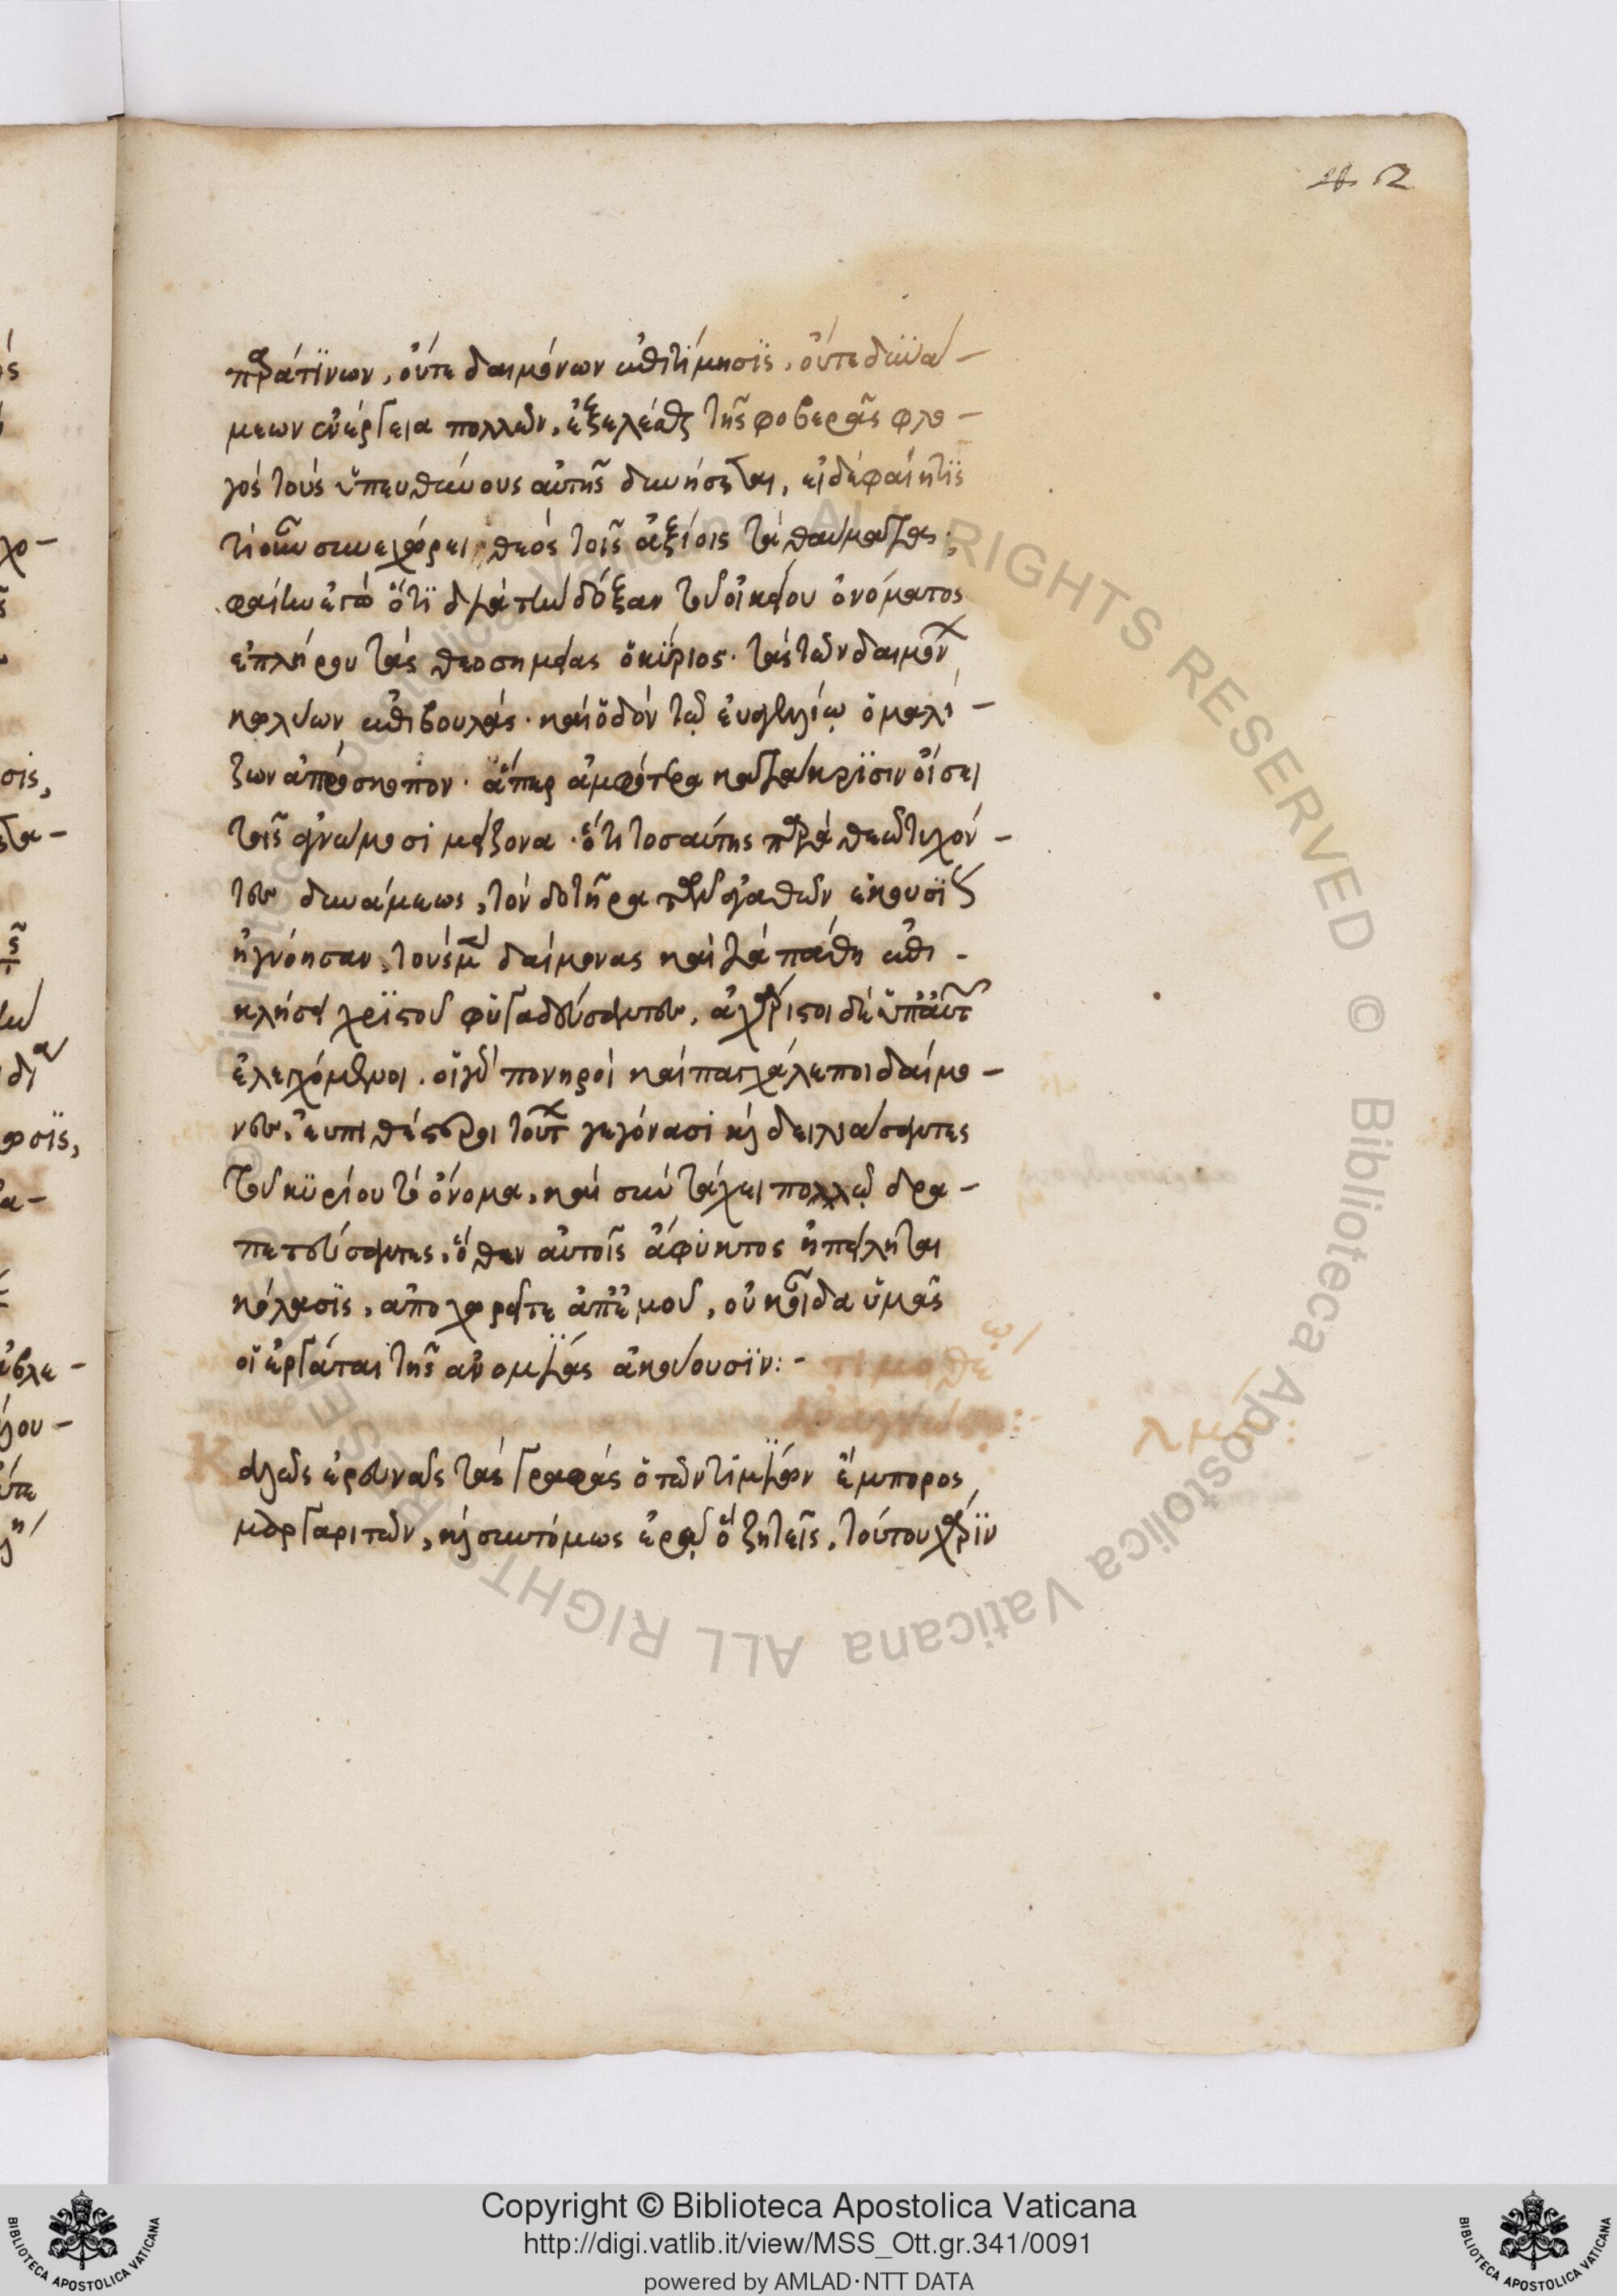 52
πρακτίνων, οὔτε δαιμόνων ἐπιτίμησϊς, οὔτε δϋνά-
μεων ἐνέργεια πολλῶν, ἐξελέσθαι τῆς φοβερᾶς φλο-
γὸς τοὺς ὑπευθύνους αὐτῆς δυνήσεται, εἰ δὲ φαίη τϊς
τί οὖν συνεχώρει θεὸς τοῖς ἀξίοις τὰ θαύματα;
φαίην ἐγὼ ὅτϊ διὰ τὴν δόξαν τοῦ οἰκείου ὀνόματος
ἐπλήρου τὰς θεοσημείας ὁ κύριος. τὰς τῶν δαιμόνων
κωλύων ἐπιβουλάς. καὶ ὁδὸν τῷ εὐαγγελίῳ ὁμαλί-
ζων ἀπρόσκοπον. ἅπερ ἀμφότερα κατάκρϊσιν οἴσει
τοῖς ἀγνώμοσι μείζονα. ὅτι τοσαύτης παρὰ θεῶ τυχόν-
τες δυνάμεως, τὸν δοτῆρα τῶν ἀγαθῶν ἑκουσίως
ἠγνόησαν, τοὺς μὲν δαίμονας καὶ τὰ πάθη ἐπι-
κλήσει χρϊστοῦ φυγαδεύσαντες, ἀχάριστοι δὲ ὑπ' αὐτῶν
ἐλεγχόμενοι. οἱ γὰρ πονηροὶ καὶ παγχάλεποι δαίμο-
νες, εὐπειθέστεροι τούτων γεγόνασι καὶ δειλιάσαντες
τοῦ κϋρίου τὸ ὄνομα, καὶ σὺν τάχει πολλῷ δρα-
πετεύσαντες, ὅθεν αὐτοῖς ἄφυκτος ἠπείληται
κόλασϊς, ἀποχωρεῖτε ἀπ' ἐμοῦ, οὐκ οἶδα ὑμᾶς
οἱ ἐργάται τῆς ἀνομίας ἀκούουσϊν:-  τιμοθέω
ἀναγνώστῃ:-
Καλῶς ἐρευνᾶς τὰς γραφὰς ὁ τῶν τιμίων ἔμπορος
μαργαριτῶν, καὶ συντόμως ἐρῶ ὃ ζητεῖς, τούτου χάρϊν
Copyright © Biblioteca Apostolica Vaticana
http://digi.vatlib.it/view/MSS_Ott.gr.341/0091
powered by AMLAD·NTT DATA
BIBLIOTECA APOSTOLICA VATICANA
BIBLIOTECA APOSTOLICA VATICANA
© Biblioteca Apostolica Vaticana ALL RIGHTS RESERVED © Biblioteca Apostolica Vaticana ALL RIGHTS RESERVED